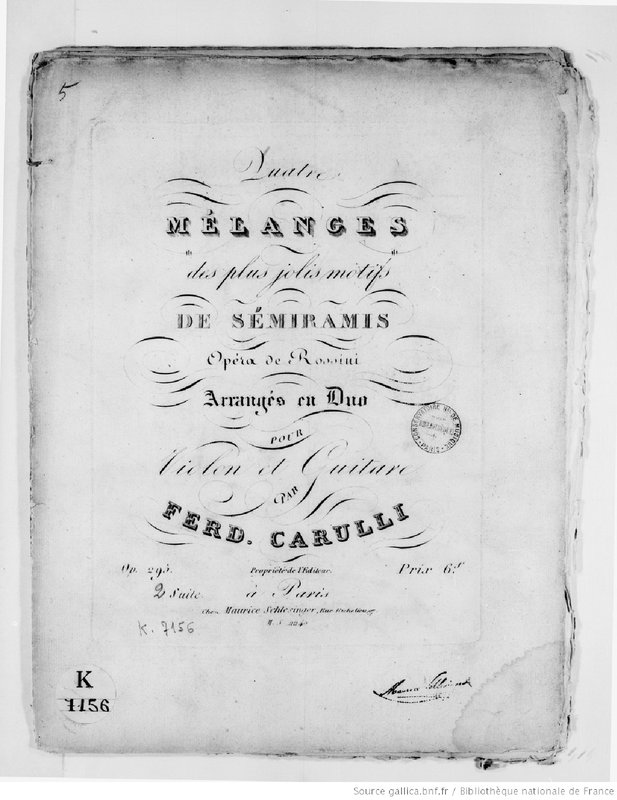 5
Quatre
MÉLANGES
des plus jolis motifs
DE SÉMIRAMIS
Opéra de Rossini
Arrangés en Duo
POUR
Violon et Guitare
PAR
FERD. CARULLI
Op. 295. Propriété de l'Editeur. Prix 6.f
2 Suite à Paris
Chez Maurice Schlesinger, Rue Richelieu, 97
K. 7156
K
1156
Source gallica.bnf.fr / Bibliothèque nationale de France